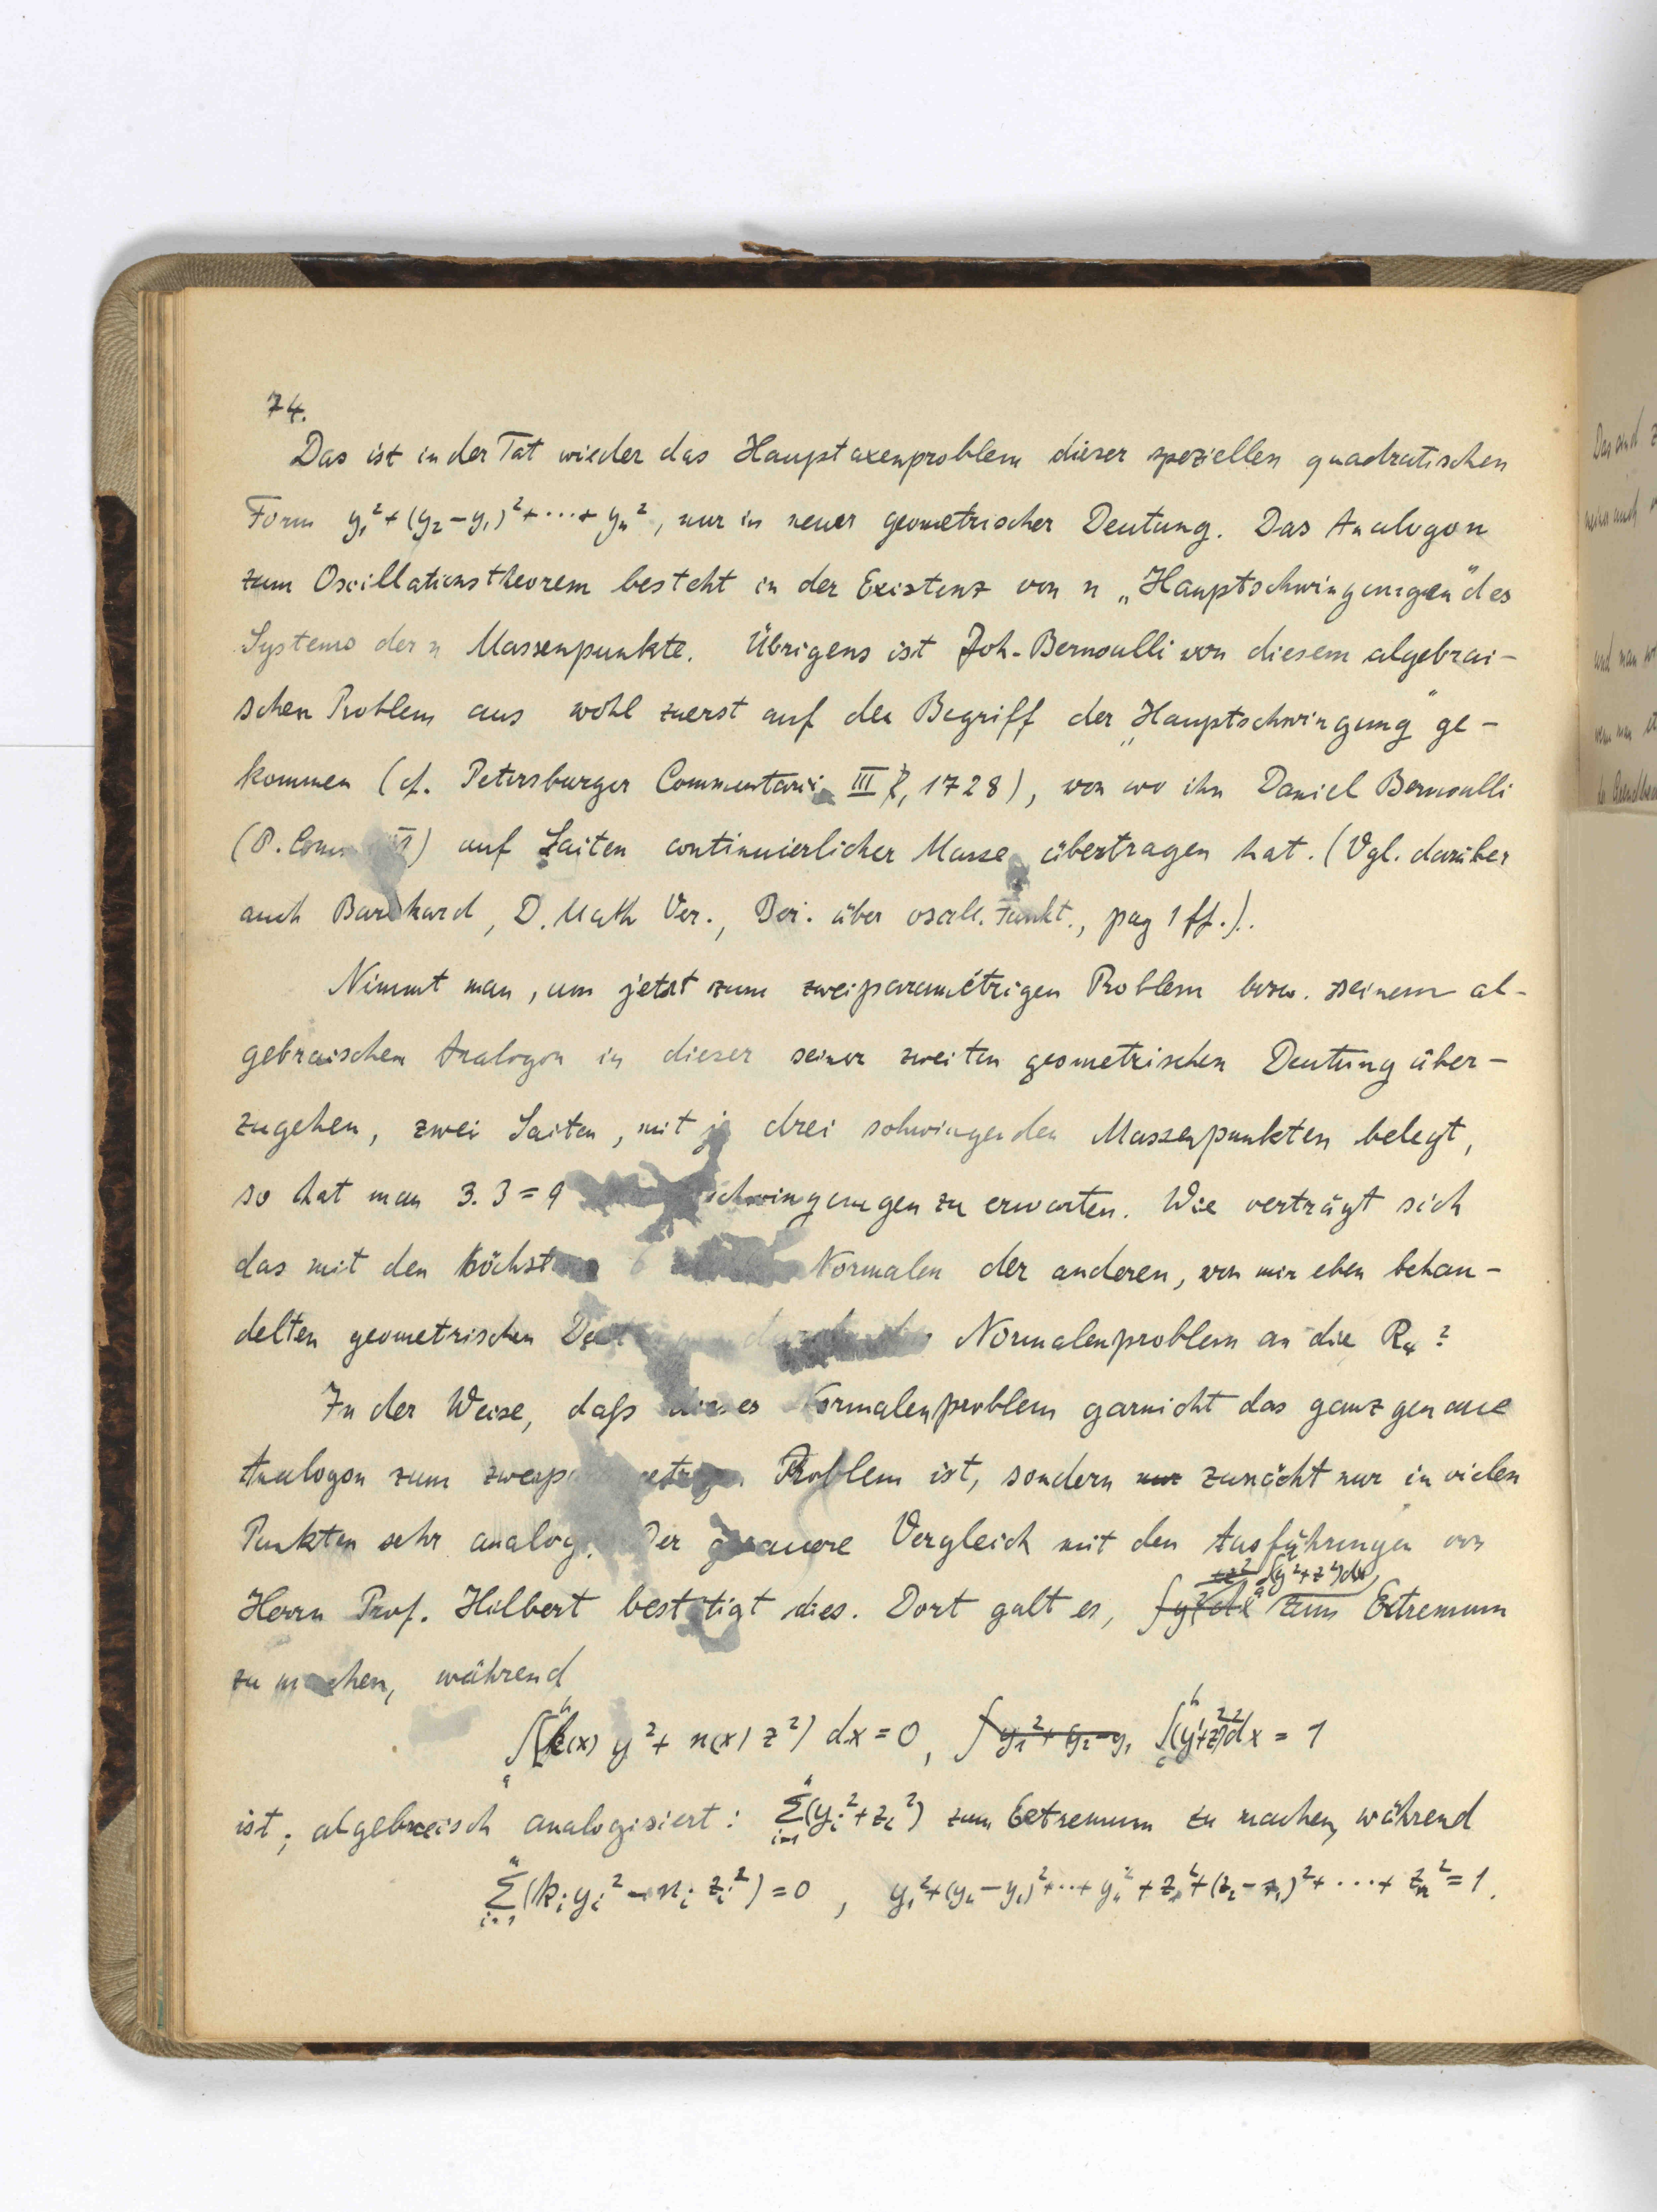 74.
Das ist in der Tat wieder das Hauptaxenproblem dieser speziellen quadratischen
Form y₁²+(y₂−y₁)²+⋯+yₙ², nur in neuer geometrischer Deutung. Das Analogon
zum Oscillationstheorem besteht in der Existenz von n „Hauptschwingungen" des
Systems der n Massenpunkte. Übrigens ist Joh. Bernoulli von diesem algebrai-
schen Problem aus wohl zuerst auf den Begriff der „Hauptschwingung" ge-
kommen (cf. Petersburger Commentarii III, 1728), von wo ihn Daniel Bernoulli
(P. Comm. VI) auf Saiten continuierlicher Masse übertragen hat. (Vgl. darüber
auch Burkhard, D. Math Ver., Ber. über oscill. Funkt., pag 1 ff.).
Nimmt man, um jetzt zum zweiparametrigen Problem bezw. seinem al-
gebraischen Analogon in dieser seiner zweiten geometrischen Deutung über-
zugehen, zwei Saiten, mit je drei schwingenden Massenpunkten belegt,
so hat man 3.3=9 schwingungen zu erwarten. Wie verträgt sich
das mit den höchstens 6 Normalen der anderen, von mir eben behan-
delten geometrischen Deutung durch das Normalenproblem an die R₄?
In der Weise, daß dieses Normalenproblem garnicht das ganz genaue
Analogon zum zweiparametrigen Problem ist, sondern nur zunächt nur in vielen
Punkten sehr analog. Der genauere Vergleich mit den Ausführungen von
Herrn Prof. Hilbert bestätigt dies. Dort galt es, ∫(y²+z²)dx zum Extremum
zu machen, während
∫(k(x) y²+ n(x) z²) dx = 0, ∫ y₁²+ y₂−y₁ ∫(y'²+z'²)dx = 1
ist; algebraisch analogisiert: Σ(yᵢ²+zᵢ²) zum Extremum zu machen, während
Σ(kᵢyᵢ² − nᵢ zᵢ²) = 0 , y₁²+(y₂−y₁)²+⋯+yₙ²+z₁²+(z₂−z₁)²+⋯+zₙ²=1.